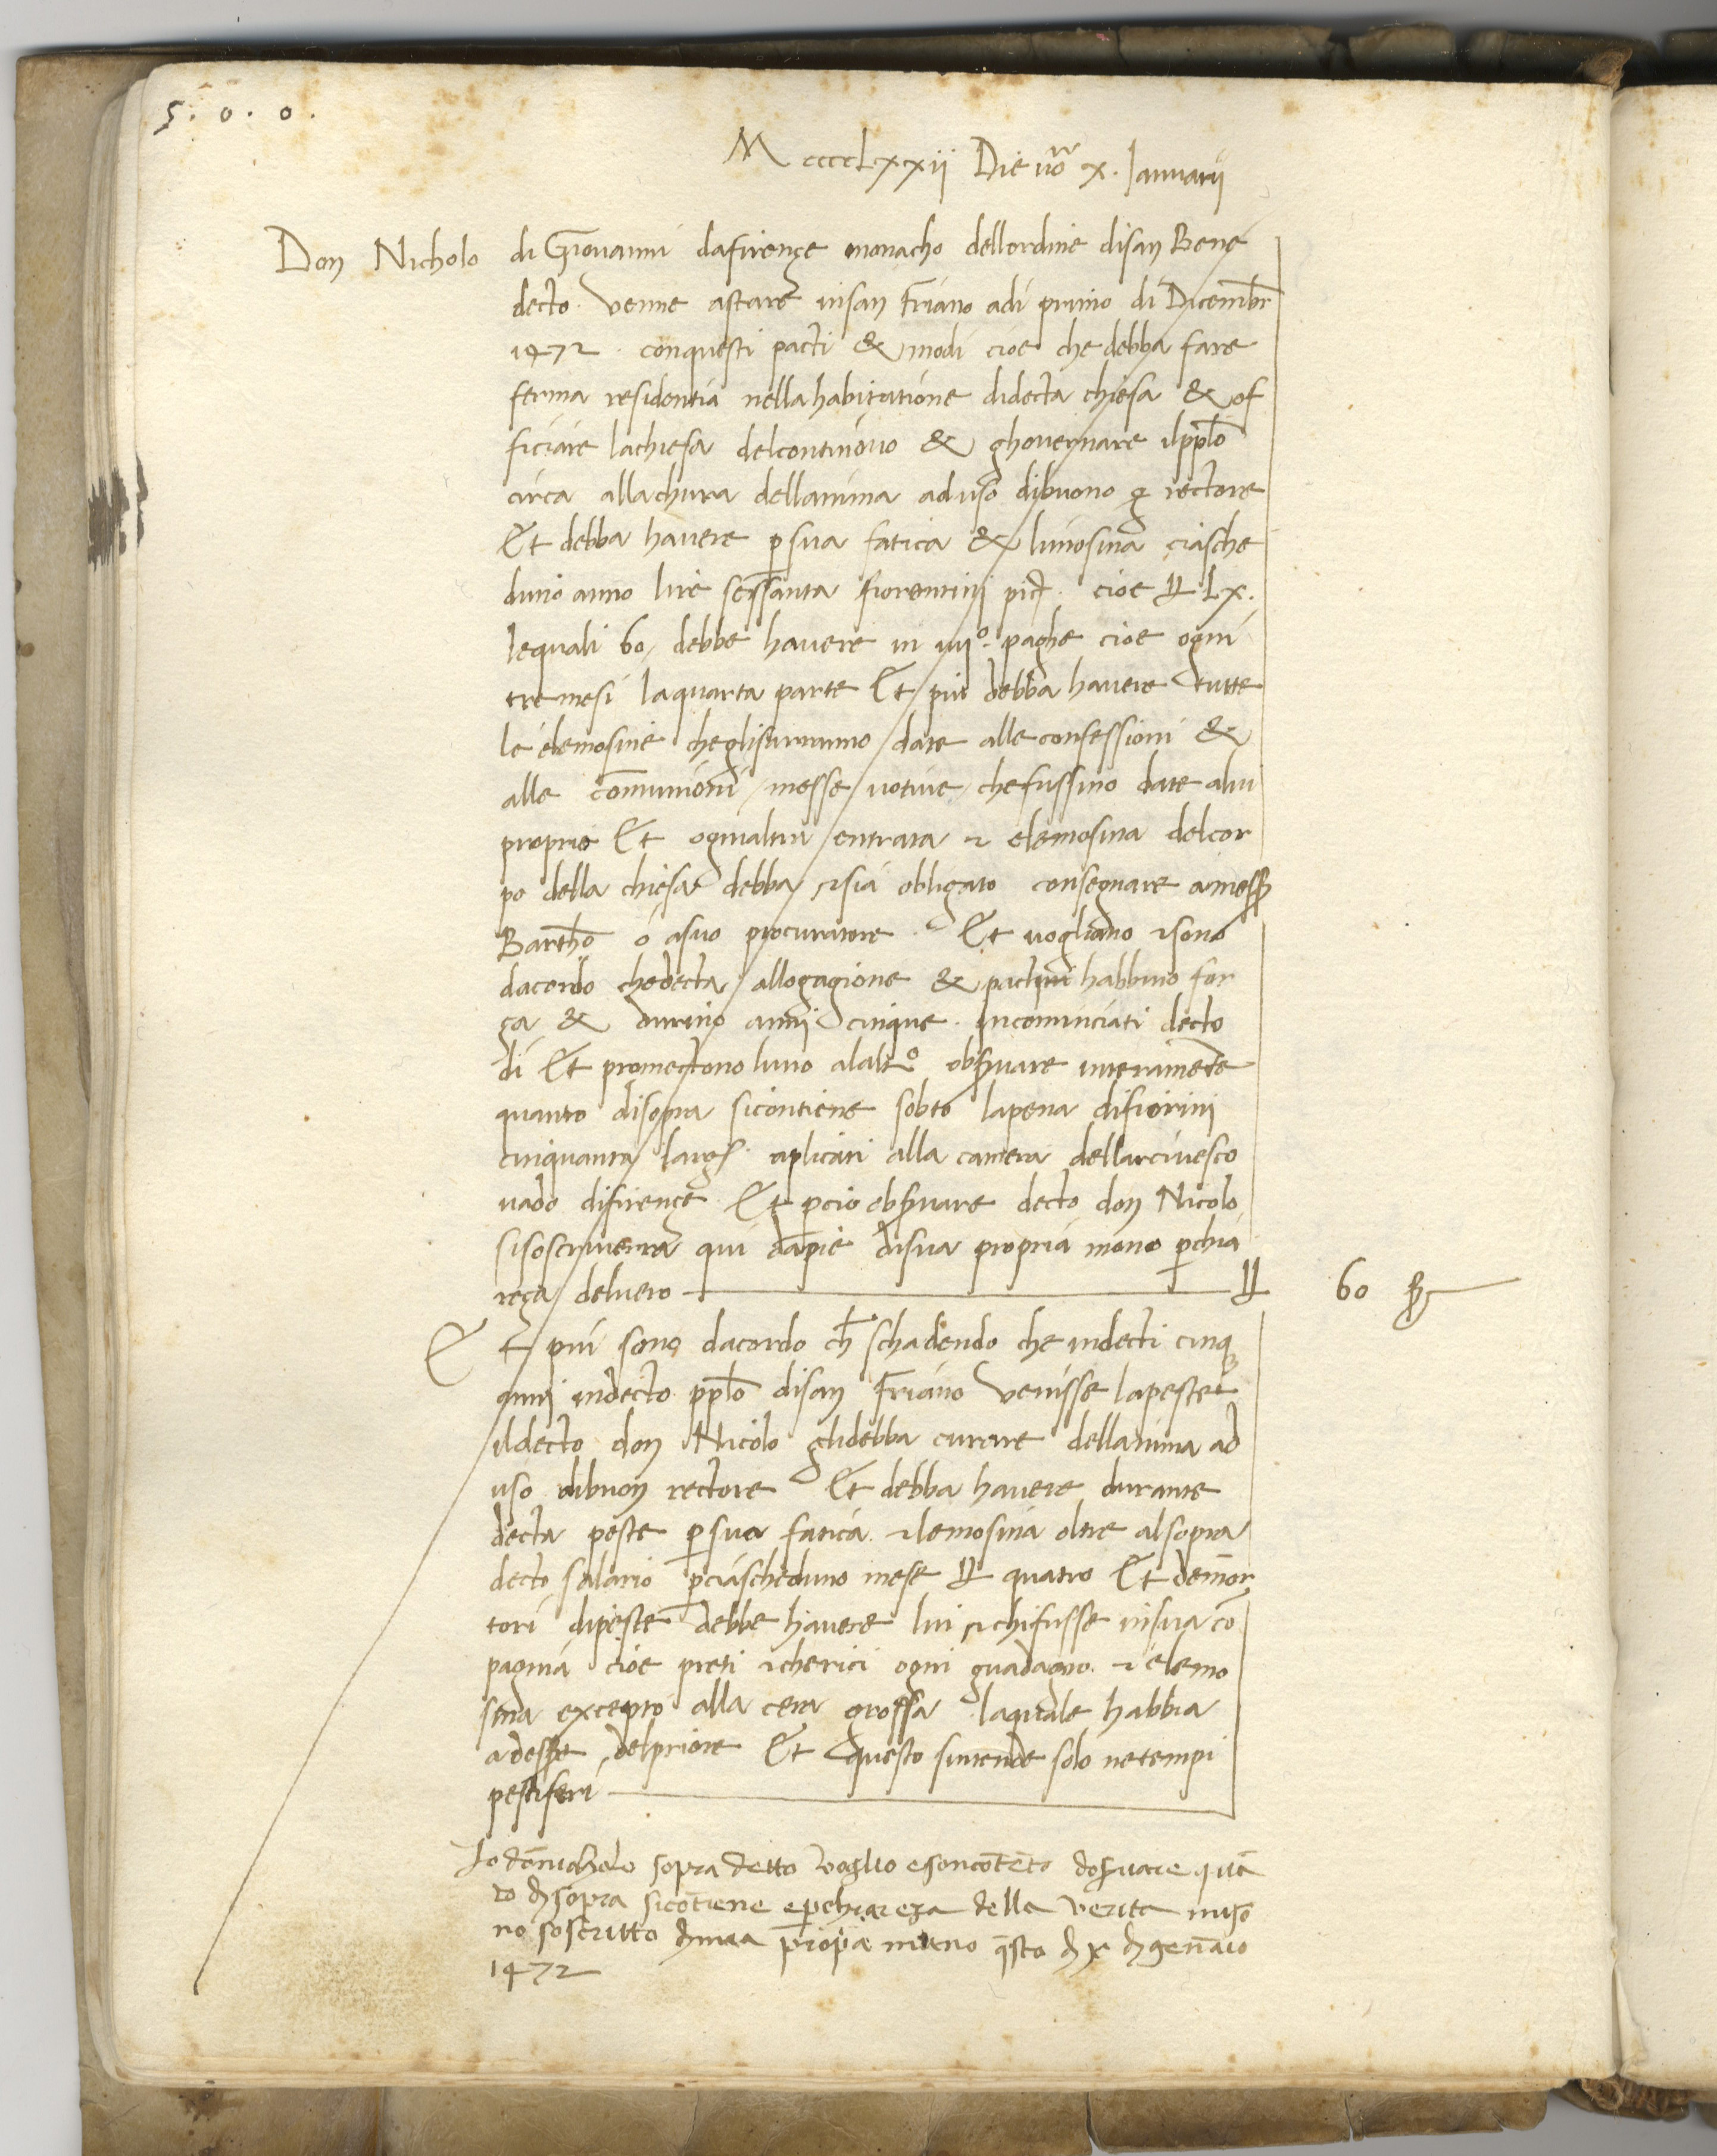 5 . 0 . 0 .
MccccLxxii Die vo x. Ianuarii
Don Nicholo di Giovanni dafirençe monacho dellordine disan Bene
decto. venne astare insan Friano adi primo di Dicembr
1472. conquesti pacti & modi cioe che debba fare
ferma residentia nella habitatione didecta chiesa & of
ficiare lachiesa delcontinovo & ghovernare ilpplo
circa alla chura dellanima aduso dibuono rectore
Et debba havere p sua fatica & limosina ciasche
duno anno lire sessanta fiorentini picc. cioe ₶ Lx.
lequali 60 debbe havere in iiiio. paghe cioe ogni
tre mesi laquarta parte Et piu debba havere tutte
le elemosine cheglisaranno date alle confessioni &
alle comunioni messe votive chefussino date alui
proprio Et ognialtra entrata & elemosina delcor
po della chiesa debba & sia obligato consegnare amess
Bartho o asuo procuratore. Et vogliano & sono
dacordo chedecta allogagione & pacti habbino for
ça & durino anni cinque. incominciati decto
di Et promectono luno alaltro obsvare interamete
quanto disopra sicontiene sobto lapena difiorini
cinquanta largi aplicati alla camera dellarcivesco
vado difirençe Et pcio obsvare decto don Nicolo
sisoscriverra qui dapie disua propria mano pchia
reça delvero ₶ 60 p
Et piu sono dacordo ch schadendo che indecti cinq
anni indecto pplo disan Friano venisse lapeste
ildecto don Nicolo glidebba curare dellanima ad
uso dibuon rectore Et debba havere durante
decta peste p sua fatica & lemosina oltre alsopra
decto salario pciascheduno mese ₶ quatro Et demor
tori dipeste debbe havere lui & chifusse insua co
pagnia cioe preti & cherici ogni guadagno. & elemo
sina excepto alla cera grossa laquale habbia
adesse delpriore Et questo sintende solo netempi
pestiferi
Io donnicholo sopra detto voglio esoncoteto dosvare qua
to di sopra sicotiene epchiareza della verita miso
no soscritto dimia propia mano qsto di x di gennaio
1472